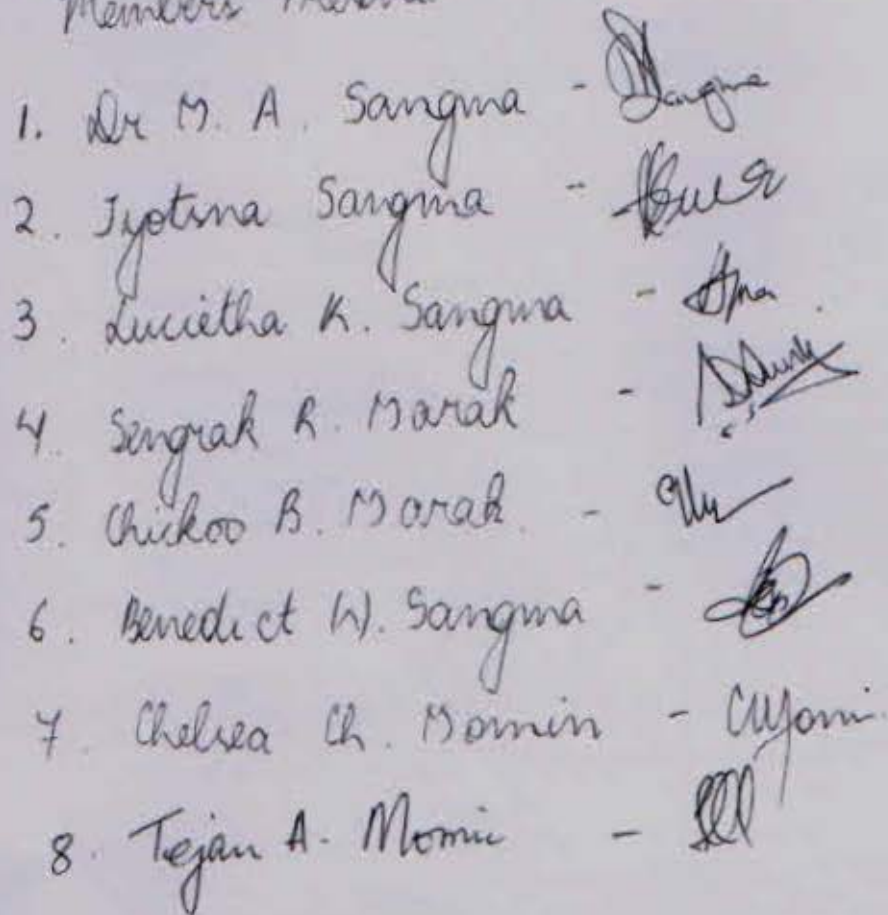 Members
1. Dr M. A. Sangma - Sangma
2. Jyotsna Sangma -
3. Lucietha K. Sangma -
4. Sengrak R. Marak -
5. Chickoo B. Marak. -
6. Benedict W. Sangma -
7. Chelsea Ch. Momin -
8. Tejan A. Momin -